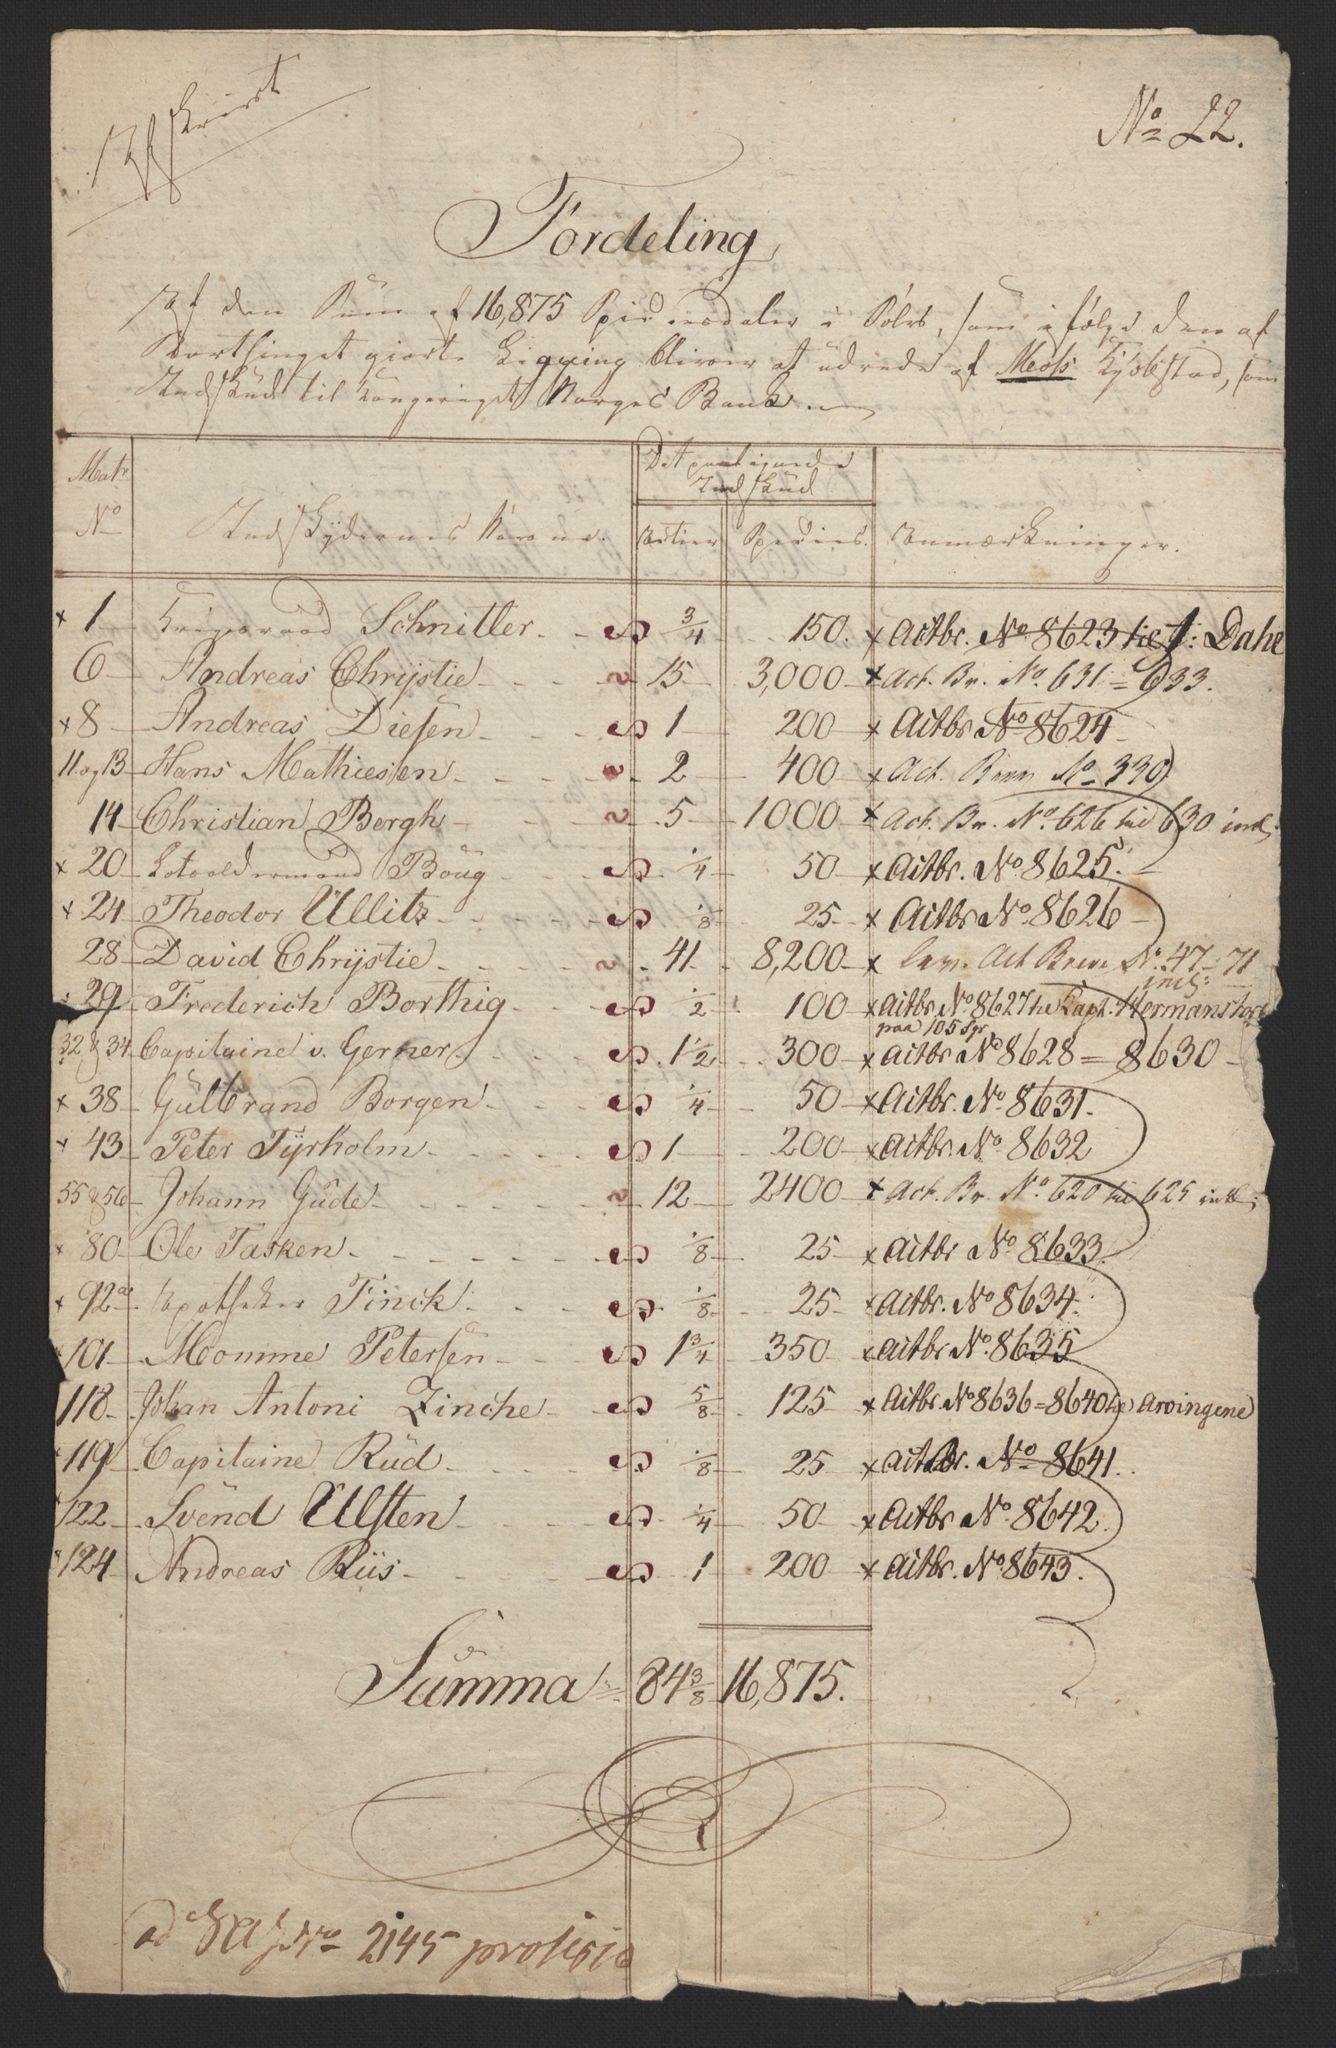 Afskrivt
No 22.
Fordeling
Af den Sum af 16,875 Speciesdaler i Sölv, som ifölge den af
Storthinget giorte Ligning bliver at udrede af Moss Kjöbstad, som
Indskud til Kongeriget Norges Bank.
Matr No
Indskydernes Navne.
Det paalignede Indskud
Actier
Species.
Anmærkninger.
x 1 Krigsraad Schnitler. 3/4 150. x Actbr. No 8623 til J: Dahl
6 Andreas Chrÿstie 15 3,000 x Act. Br. No. 631 = 633.
x 8 Andreas Diesen 1 200 x Actbr No 8624
11 og 13 Hans Mathiesen 2 400 x Act. Brev No 330
14 Christian Bergh 5 1000 x Act. Br. No. 626 til 630 incl:
x 20 Lodsoldermand Böug 1/4 50 x Actbr. No 8625.
x 24 Theodor Ullitz 1/8 25 x Actbr No. 8626
28 David Chrÿstie 41 8,200 x Act Breve No. 47 - 71 incl:
29 Frederich Borthig 1/2 100 x Actbr No 8627 til Kapt. Hermansen
paa 105 Spr
32 & 34 Capitaine v. Gerner 1 1/2 300 x Actbr No 8628 = 8630
x 38 Gulbrand Borgen 1/4 50 x Actbr. No. 8631.
x 43 Peter Tÿrholm 1 200 x Actbr. No 8632
55 & 56 Johann Gude 12 2400 x Act. Br. No. 620 til 625 incl;
x 80 Ole Tasken 1/8 25 x Actbr No 8633.
x 92a Apotheker Finck 1/8 25 x Actbr. No 8634.
101 Momme Petersen 1 3/4 350 x Actbr No. 8635
118 Johan Antoni Zinche 5/8 125 x Actbr. No 8636 = 8640 til Arvingene
119 Capitaine Rud 1/8 25 x Actbr. No 8641.
122 Svend Ulsten 1/4 50 x Actbr No. 8642
124 Andreas Riis 1 200 x Actbr. No. 8643.
Summa 84 3/8 16,875.
ad No 2145